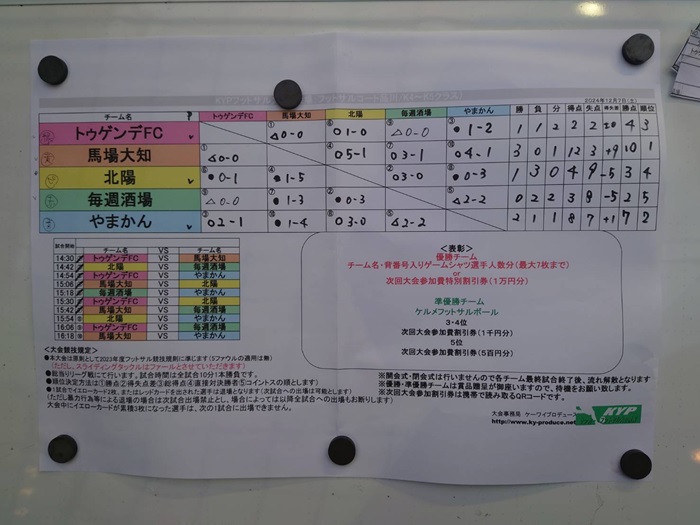 2024年12月7日(土)
チーム名 トゥゲンデFC 馬場大知 北陽 毎週酒場 やまかん 勝 負 分 得点 失点 得失差 勝点 順位
トゥゲンデFC ①△0-0 ⑥○1-0 ⑨△0-0 ③●1-2 1 1 2 2 2 ±0 4 3
馬場大知 ①△0-0 ④○5-1 ⑦○3-1 ⑩○4-1 3 0 1 12 3 +9 10 1
北陽 ⑥●0-1 ④●1-5 ②○3-0 ⑧●0-3 1 3 0 4 9 -5 3 4
毎週酒場 ⑨△0-0 ⑦●1-3 ②●0-3 ⑤△2-2 0 2 2 3 8 -5 2 5
やまかん ③○2-1 ⑩●1-4 ⑧○3-0 ⑤△2-2 2 1 1 8 7 +1 7 2
試合開始 チーム名 VS チーム名
14:30 トゥゲンデFC VS 馬場大知
14:42 北陽 VS 毎週酒場
14:54 トゥゲンデFC VS やまかん
15:06 馬場大知 VS 北陽
15:18 毎週酒場 VS やまかん
15:30 トゥゲンデFC VS 北陽
15:42 馬場大知 VS 毎週酒場
15:54 北陽 VS やまかん
16:06 トゥゲンデFC VS 毎週酒場
16:18 馬場大知 VS やまかん
<表彰>
優勝チーム
チーム名・背番号入りゲームシャツ選手人数分(最大7枚まで)
or
次回大会参加費特別割引券(1万円分)
準優勝チーム
ケルメフットサルボール
3・4位
次回大会参加費割引券(1千円分)
5位
次回大会参加費割引券(5百円分)
<大会競技規定>
●本大会は原則として2023年度フットサル競技規則に準じます(5ファウルの適用は無)
(ただし、スライディングタックルはファールとさせていただきます)
●総当りリーグ戦にて行います。試合時間は全試合10分1本勝負です。
●順位決定方法は①勝点②得失点差③総得点④直接対決勝者⑤コイントスの順とします)
●1試合でイエローカード2枚、またはレッドカードを出された選手は退場となります(次試合への出場は可能とします)
(ただし暴力行為等による退場の場合は次試合出場禁止とし、場合によっては以降全試合への出場もお断りします)
大会中にイエローカードが累積3枚になった選手は、次の1試合に出場できません。
※開会式・閉会式は行いませんので各チーム最終試合終了後、流れ解散となります
※優勝・準優勝チームは賞品贈呈が御座いますので、待機をお願い致します。
※次回大会参加費割引券は携帯で読み取るQRコードです。
大会事務局 ケーワイプロデュース
http://www.ky-produce.net
KYP